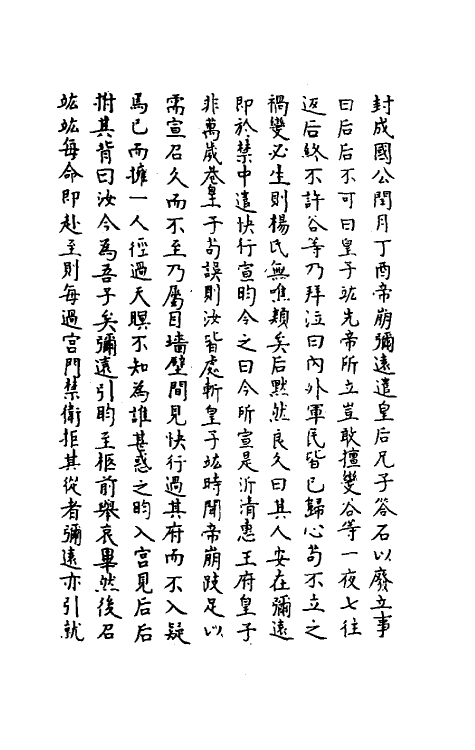 封成國公閏月丁酉帝崩彌遠遣皇后兄子谷石以廢立事
曰后后不可曰皇子竑先帝所立豈敢擅變谷等一夜七往
返后終不許谷等乃拜泣曰內外軍民皆已歸心苟不立之
禍變必生則楊氏無噍類矣后黙然良久曰其人安在彌遠
即於禁中遣快行宣昀令之曰今所宣是沂清惠王府皇子
非萬歲巷皇子苟誤則汝皆處斬皇子竑時聞帝崩跂足以
需宣召久而不至乃屬目墻壁間見快行過其府而不入疑
焉已而擁一人徑過天暝不知為誰甚惑之昀入宫見后后
拊其背曰汝今為吾子矣彌遠引昀至柩前舉哀畢然後召
竑竑每命即赴至則每過宫門禁衛拒其從者彌遠亦引就